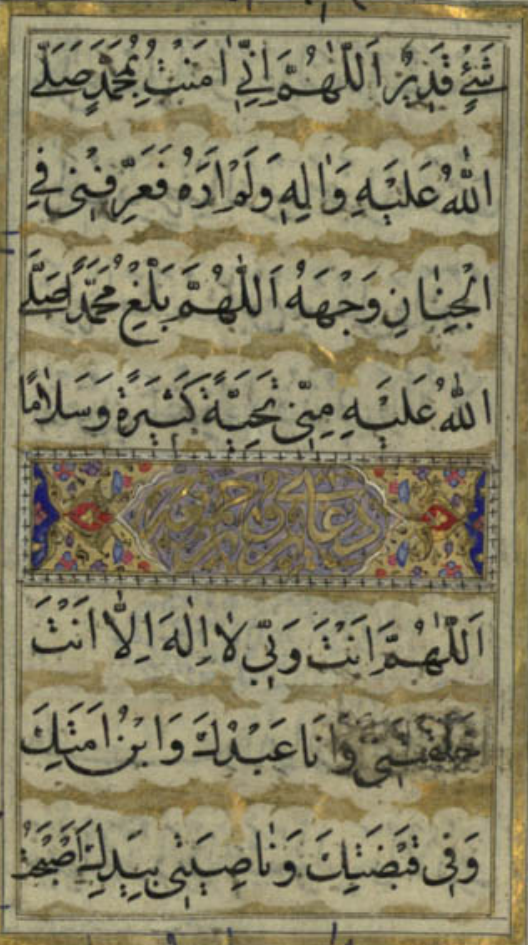 شَئٍ قَدِيرٌ اَللّٰهُمَّ اِنِّي اٰمَنْتُ بِمُحَمَّدٍ صَلَّے
اللّٰهُ عَلَيْهِ وَاٰلِهِ وَلَمْ اَرَهُ فَعَرِّفْنِى فِے
الْجِنٰانِ وَجْهَهُ اَللّٰهُمَّ بَلِّغْ مُحَمَّدًا صَلَّے
اللّٰهُ عَلَيْهِ مِنِّى تَحِيَّةً كَثِيرَةً وَسَلاٰمًا
دعاى روز
اَللّٰهُمَّ اَنْتَ رَبِّي لاٰ اِلٰهَ اِلاّٰ اَنْتَ
خَلَقْتَنِى وَاَنَا عَبْدُكَ وَابْنُ اَمَتِكَ
وَفِى قَبْضَتِكَ وَنٰاصِيَتِى بِيَدِكَ اَصْبَحْتُ